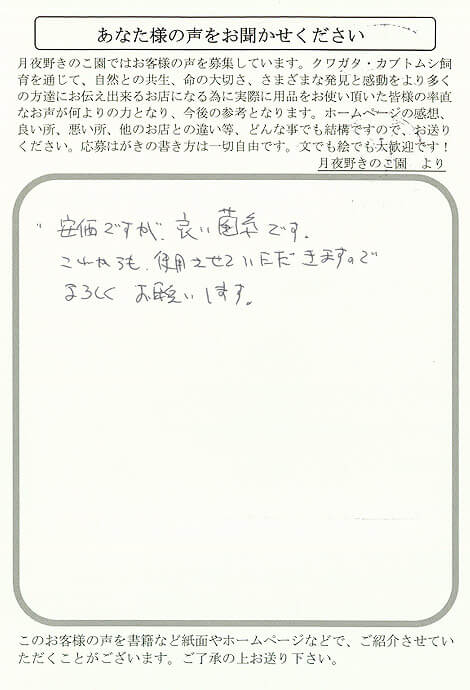 あなた様の声をお聞かせください
月夜野きのこ園ではお客様の声を募集しています。クワガタ・カブトムシ飼
育を通じて、自然との共生、命の大切さ、さまざまな発見と感動をより多く
の方達にお伝え出来るお店になる為に実際に用品をお使い頂いた皆様の率直
なお声が何よりの力となり、今後の参考となります。ホームページの感想、
良い所、悪い所、他のお店との違い等、どんな事でも結構ですので、お送り
ください。応募はがきの書き方は一切自由です。文でも絵でも大歓迎です！
月夜野きのこ園　より
安価ですが、良い菌糸です。
これからも、使用させていただきますので
よろしく お願いします。
このお客様の声を書籍など紙面やホームページなどで、ご紹介させてい
ただくことがございます。ご了承の上お送り下さい。